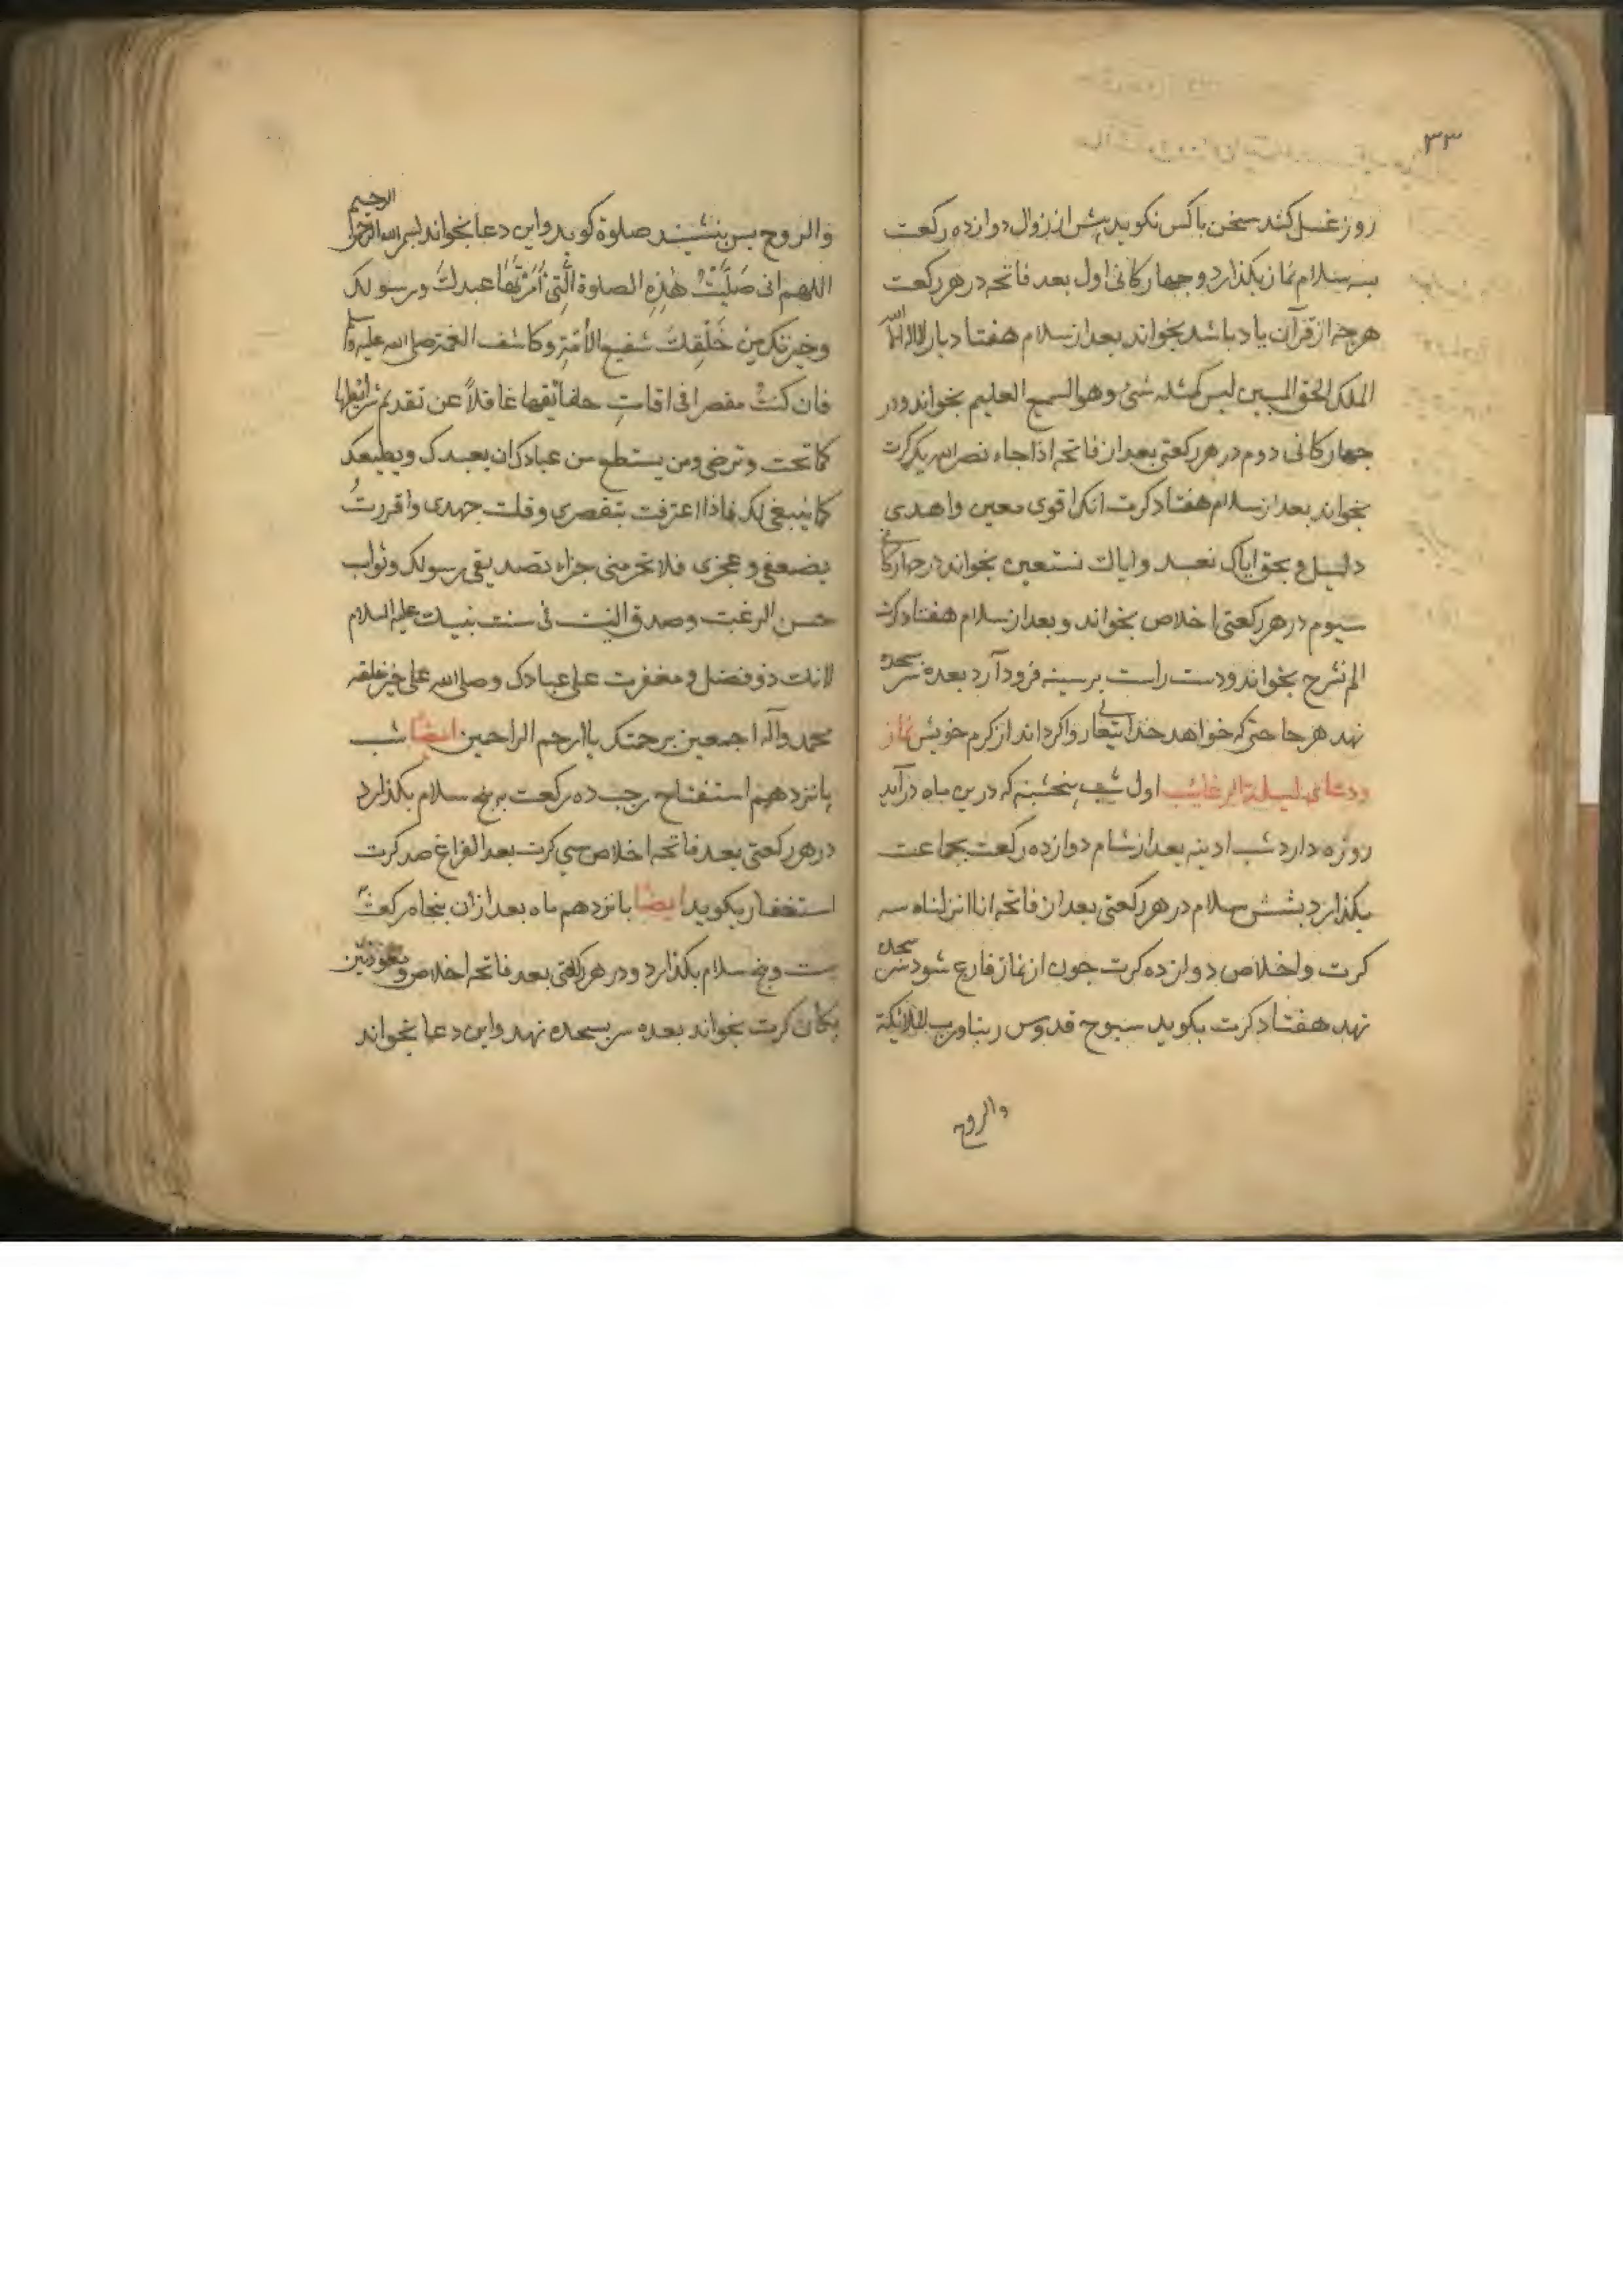 ۳۳
روز غسل کند سخن با کس نکوید پیش از زوال دوازده رکعت
بسه سلام نماز بکذارد و چهارکانی اول بعد فاتحه در هر رکعت
هرچه از قرآن یاد باشد بخواند بعد از سلام هفتاد بار لا اله الا الله
الملک الحق المبین لیس کمثله شیء وهو السمیع العلیم بخواند و در
چهارکانی دوم در هر رکعتی بعد از فاتحه اذا جاء نصر الله یک کرت
بخواند بعد از سلام هفتاد کرت انک اقوی معین واهدی
دلیل و بحق ایاک نعبد وایاک نستعین بخواند در چهارکانی
سیوم در هر رکعتی اخلاص بخواند و بعد از سلام هفتاد کرت
الم نشرح بخواند و دست راست بر سینه فرود آرد بعده سر بسجده
نهد هر حاجتی که خواهد خدایتعالی روا کرداند از کرم خویش نماز
ودعای لیلة الرغائب اول شب پنجشنبه که درین ماه درآید
روزه دارد شب ادینه بعد از شام دوازده رکعت بجماعت
بکذارد بشش سلام در هر رکعتی بعد از فاتحه انا انزلناه سه
کرت و اخلاص دوازده کرت چون از نماز فارغ شود سر بسجده
نهد هفتاد کرت بکوید سبوح قدوس ربنا ورب الملائکة
والروح
والروح پس بنشیند صلوة کوید و این دعا بخواند بسم الله الرحمن الرحیم
اللهم انی صَلَّیْتُ هٰذِهِ الصلوة الَّتِی اَمَرَ بِهَا عبدك ورسولک
وخیرتک مِن خَلْقِكَ شفیع الاُمَّةِ وکاشف الغمة صلی الله علیه وسلم
فان کنتُ مقصرا فی اقاتِ حقائقها غافلاً عن تقدیم شرائطها
کما تحب وترضی ومن یستطع من عبادک ان یعبدک ویطیعک
کما ینبغی لک فاذا اعترفت بتقصری وقلت جهدی واقررتُ
بضعفی وعجزی فلا تحرمنی جزاء تصدیقی برسولک وثواب
حسن الرغبت وصدق النیت فی سنت نبیك علیه السلام
لانك ذو فضل ومغفرت علی عبادک وصلی الله علی خیر خلقه
محمد وآله اجمعین برحمتک یا ارحم الراحمین ایضاً شب
پانزدهم استفتاح رجب ده رکعت به پنج سلام بکذارد
در هر رکعتی بعد فاتحه اخلاص سی کرت بعد الفراغ صد کرت
استغفار بکوید ایضاً پانزدهم ماه بعد ازان پنجاه رکعت
بیست و پنج سلام بکذارد و در هر رکعتی بعد فاتحه اخلاص و معوذتین
یکان کرت بخواند بعده سر بسجده نهد و این دعا بخواند